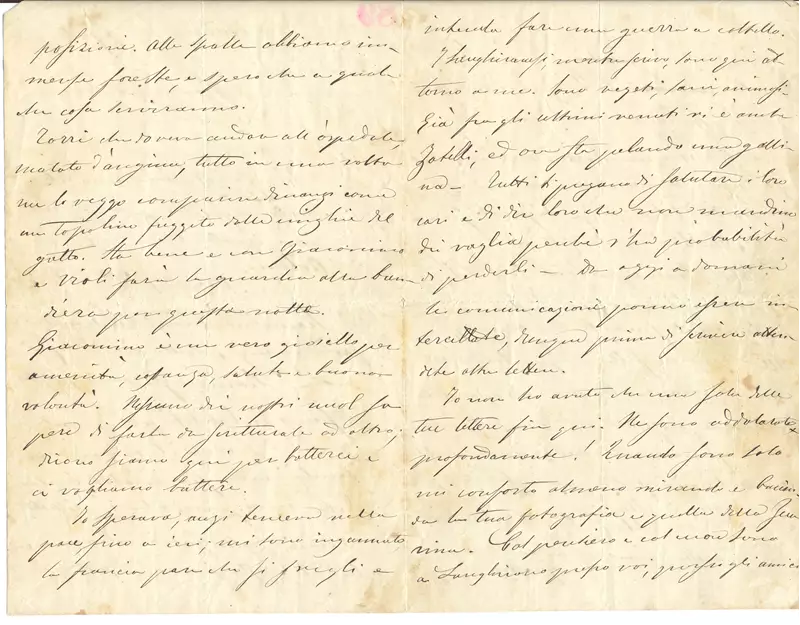 posizione. Alle spalle abbiamo im-
mense foreste, e spero che a qual-
che cosa serviranno.
Torri che doveva andare all'ospedale,
malato d'angina, tutto in una volta
me lo veggo comparire dinanzi come
un topolino fuggito dalle unghie del
gatto. Sta bene e con Giacomino
e Violi farà la guardia alla ban-
diera per questa notte.
Giacomino è un vero gioiello per
amenità, costanza, salute e buona
volontà. Nessuno dei nostri vuol sa-
pere di farla da scritturale od altro;
dicono siamo qui per batterci e
ci vogliamo battere.
Io sperava, anzi teneva nella
pace, fino a ieri; mi sono ingannato
la francia pare che si svegli e
intenda fare una guerra a coltello.
I Langhiranesi, mentre scrivo, sono qui at-
torno a me. Sono vegeti, sani animosi
Già fra gli ultimi venuti vi è anche
Zatelli, ed ora sta pelando una galli-
na — Tutti ti pregano di salutare i loro
cari e di dir loro che non mandino
dei vaglia perchè s'ha probabilità
di perderli — Da oggi a domani
le comunicazioni ponno essere in-
tercettate, dunque prima di scrivere atten-
dete altre lettere.
Io non ho avuto che una sola delle
tue lettere fin qui. Ne sono addolorato
profondamente! Quando sono solo
mi conforto almeno mirando e bacian-
do la tua fotografia e quella della
rina. Col pensiero e col cuore sono
a Langhirano presso voi, presso gli amici